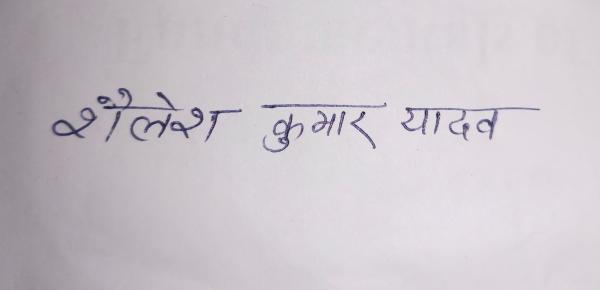 शैलेश कुमार यादव